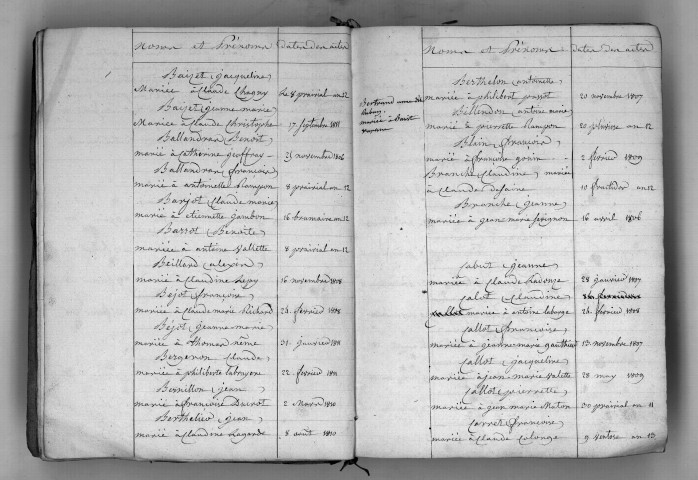 Noms et Prénoms dates des actes
Baizet jacqueline
Mariée à Claude Chagny le 8 prairial an 12
Baizet jeanne marie
Mariée à Claude Christophe 17 septembre 1811
Ballandras Benoit
marié à Catherine geoffray 25 novembre 1806
Ballandras françois
marié à antoinette 8 prairial an 12
Barjot Claude marie
marié à etiennette gambon 16 brumaire an 12
Barrot Benoite
mariée à antoine Vallette 8 prairial an 12
Beillard
marié à Claudine 16 novembre 1808
Bejot françoise
mariée à Claude marie Richard 24 février 1808
Bejot jeanne marie
mariée à thomas même 31 janvier 1811
Bergeron Claude
marié à philiberte labruyere 22 février 1811
Bernillon jean
marié à françoise Ducrot 2 Mars 1810
Berthelier jean
marié à Claudine Lagarde 8 août 1810
Noms et Prénoms dates des actes
Berthelon antoinette
mariée à philibert 20 novembre 1807
Bertrand
mariée à
Billendon antoine marie
marié à pierrette Plampon 20 pluviose an 12
Blain françois
marié à françoise gonin 2 février 1809
Branche Claudine mariée
à Claude 10 fructidor an 12
Branche jeanne
mariée à jean marie 16 avril 1806
jeanne
mariée à Claude 28 janvier 1807
Calot Claudine
mariée à antoine laborge 24 février 1808
Callot françoise
mariée à jeanne marie gauthier 13 novembre 1807
Callot jacqueline
mariée à jean marie Valette 28 may 1809
Callot pierrette
mariée à jean marie Maton 30 prairial an 11
Carret françoise
mariée à Claude Colonge 9 ventose an 13